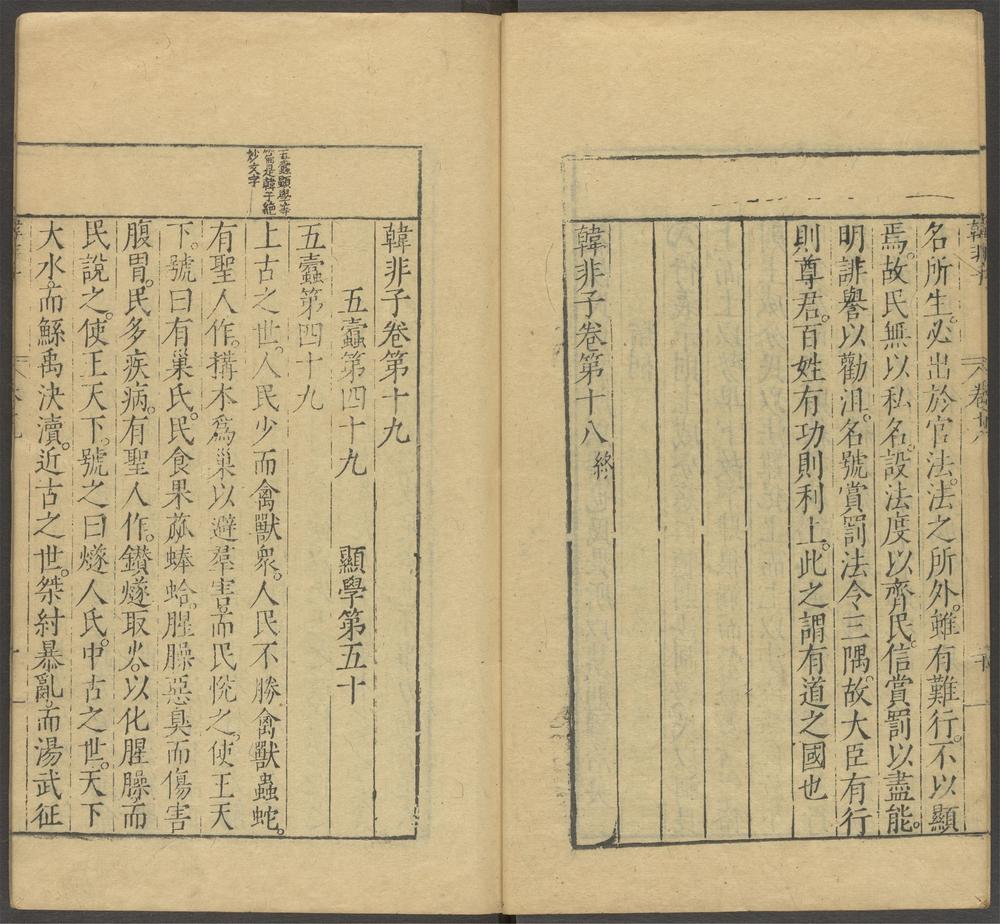 名所生。必出於官法。法之所外。雖有難行。不以顯
焉。故民無以私名。設法度以齊民。信賞罰以盡能。
明誹譽以勸沮。名號賞罰法令三隅。故大臣有行
則尊君。百姓有功則利上。此之謂有道之國也
韓非子卷第十八 終
五蠹顯學等
篇是韓子絕
妙文字
韓非子卷第十九
五蠹第四十九 顯學第五十
五蠹第四十九
上古之世。人民少而禽獸衆。人民不勝禽獸蟲蛇。
有聖人作。搆木爲巢。以避羣害。而民悅之。使王天
下。號曰有巢氏。民食果蓏蜯蛤。腥臊惡臭而傷害
腹胃。民多疾病。有聖人作。鑽燧取火。以化腥臊。而
民說之。使王天下。號之曰燧人氏。中古之世。天下
大水。而鯀禹決瀆。近古之世。桀紂暴亂。而湯武征